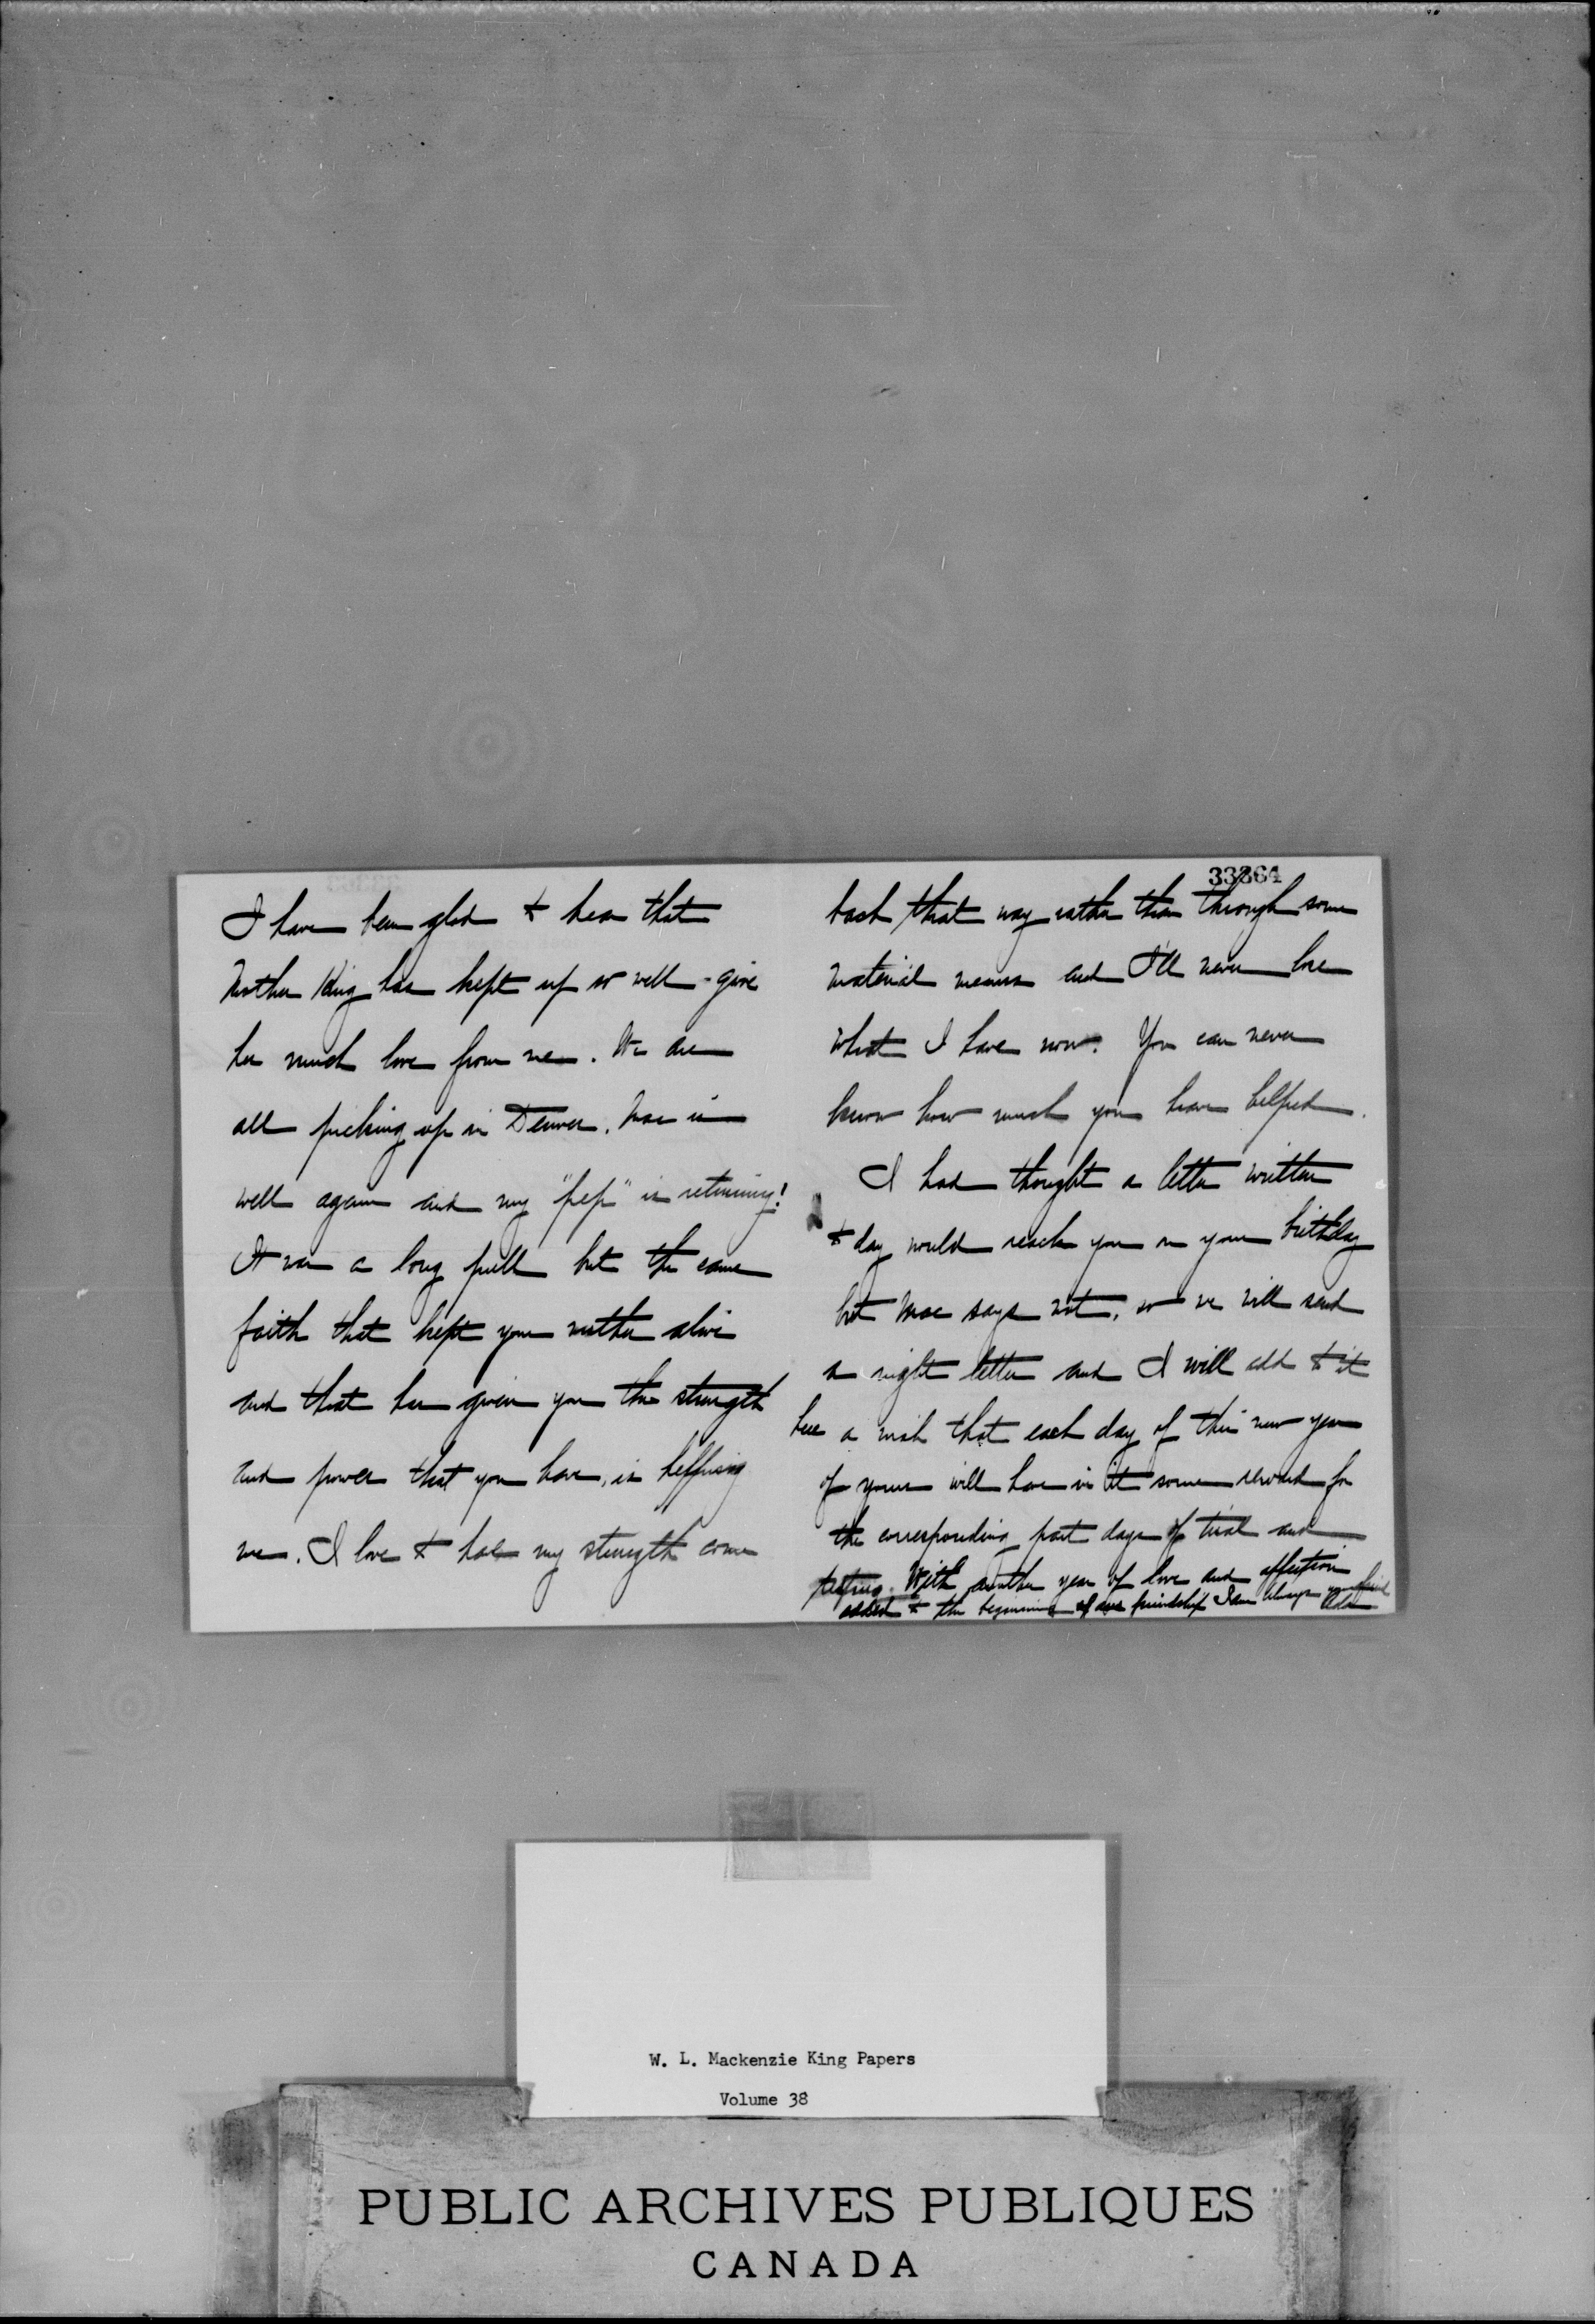 I have been glad to hear that
Mother King has kept up so well - give
her much love from me. We are
all picking up in Denver. Mac is
well again and my "pep" is returning!
It was a long pull but the same
faith that kept your mother alive
and that has given you the strength
and power that you have, is helping
me. I love to have my strength come
33864
back that way rather than through some
material means and I'll never lose
what I have now. You can never
know how much you have helped.
I had thought a letter written
to day would reach you on your birthday
but Mac says not, so we will send
a night letter and I will add to it
here a wish that each day of this new year
of yours will have in it some reward for
the corresponding past days of trial and
testing. With another year of love and affection
added to the beginning of our friendship I am always your friend
Ada
W. L. Mackenzie King Papers
Volume 38
PUBLIC ARCHIVES PUBLIQUES
CANADA